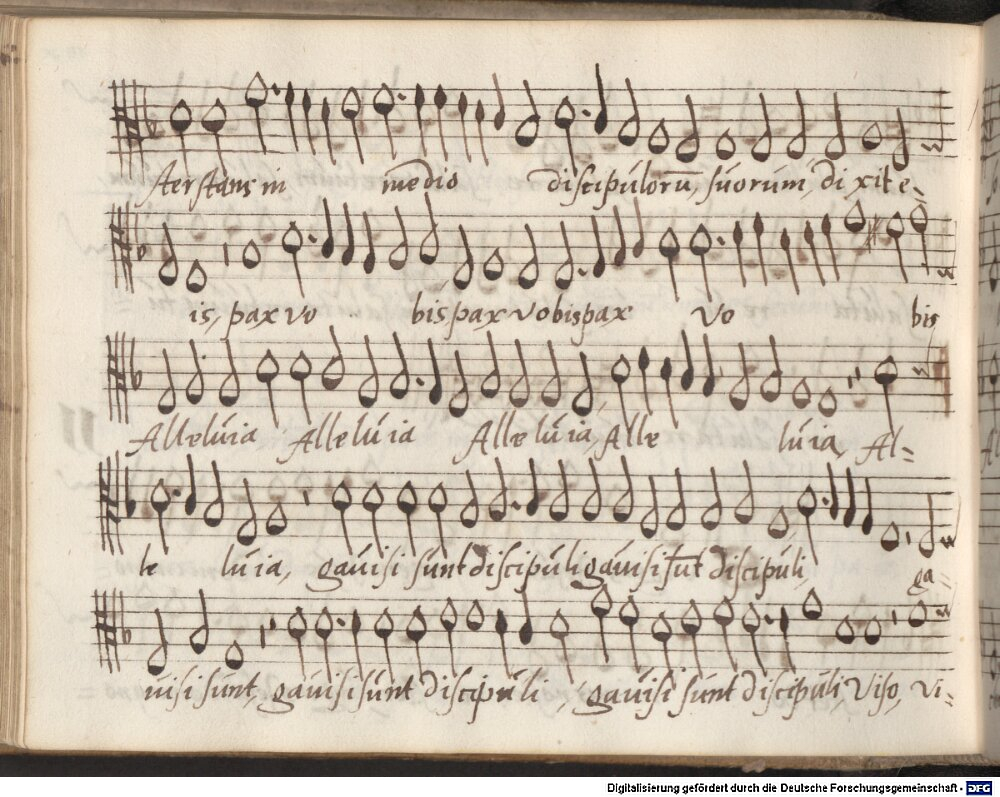 ster stans in medio discipuloru, suorum, di xit e-
is, pax vo bis pax vobis pax vo bis
Alleluia Alleluia Alleluia, Alle luia, Al-
le luia, gauisi sunt discipuli gauisi sut discipuli, ga-
uisi sunt, gauisi sunt discipuli, gauisi sunt discipuli Viso, Vi-
Digitalisierung gefördert durch die Deutsche Forschungsgemeinschaft - DFG